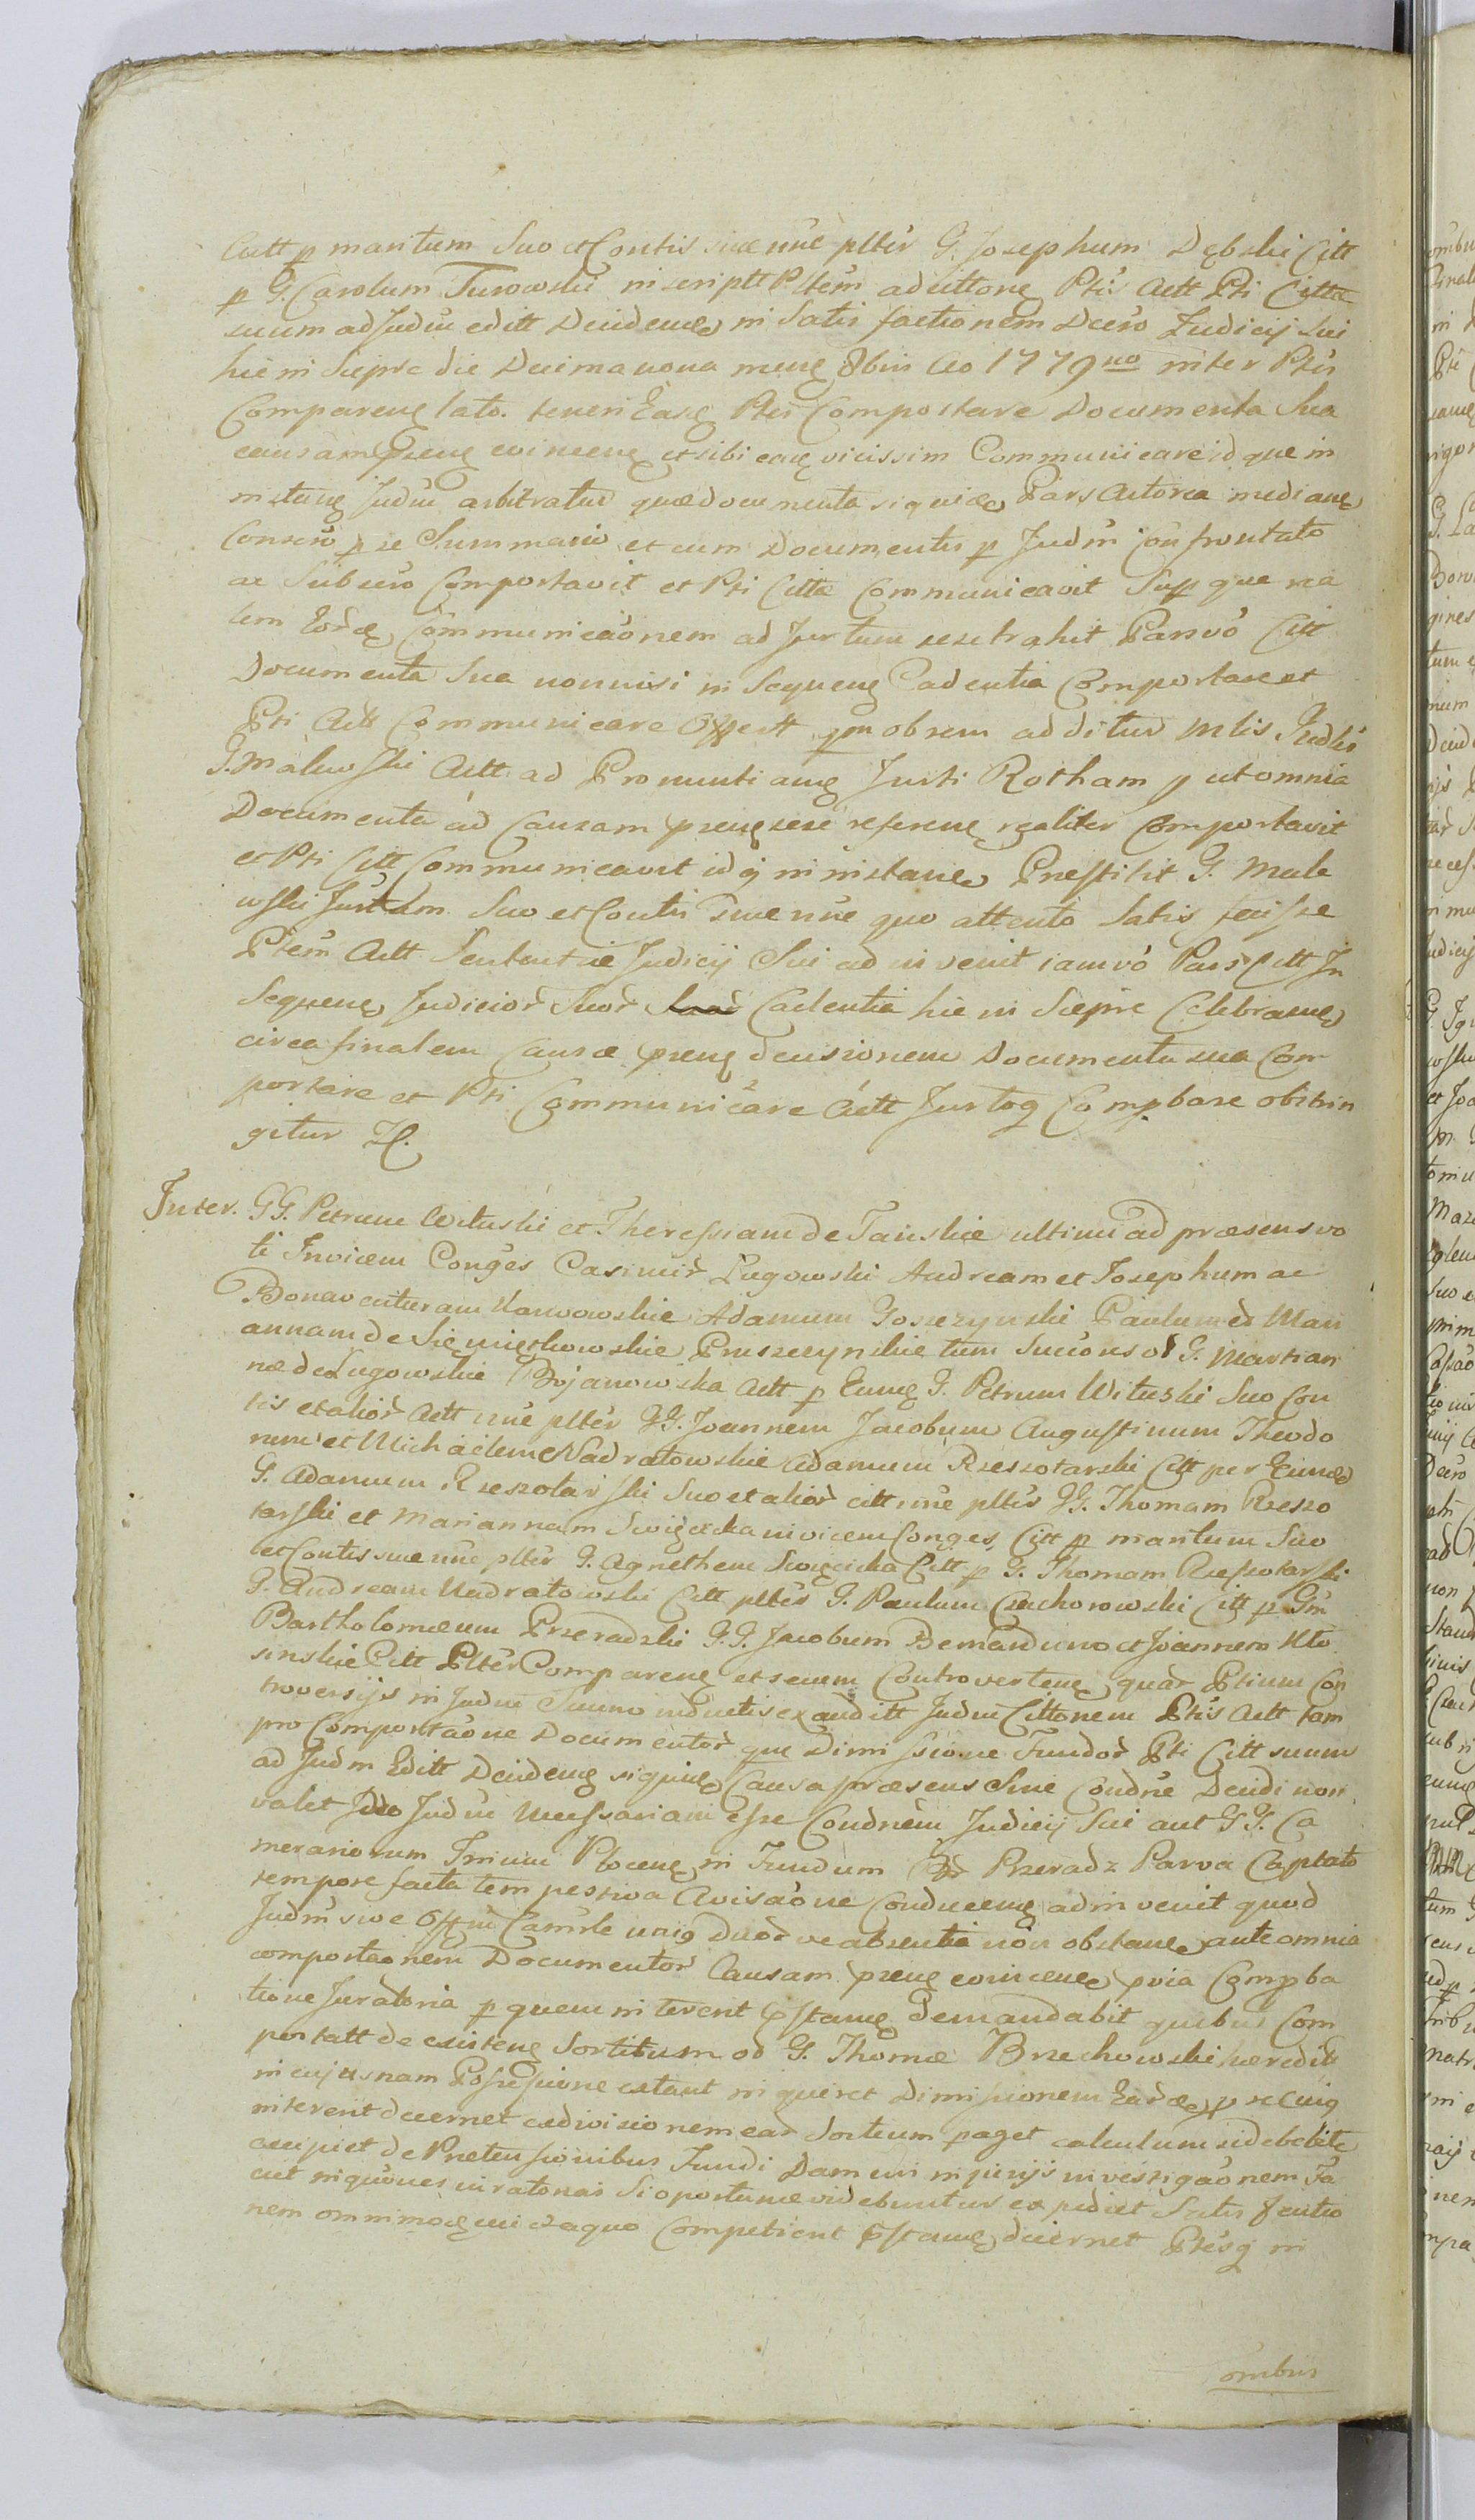 Actt p maritum Suo et Contis suae nnē pltēr G. Josephum Dębski Citt
p G. Carolum Turowski inscriptt Ptem ad citton Ptis Actt Pti Citta
suum ad Judm editt Decidene in Satis factionem Dcero Judicij Sui
hic in Sieprc die Decima nona mens 8bris Ao 1779no inter Ptes
Comparen lato. teneri Easq Ptes Comportare Documenta Sua
causam psene evincen et sibi eaq vicissim Communicare idque in
instanti Judm arbitratur quae documenta siquide Pars Actorea median
Conserv p se Summario et cum Documentis p Judm confrontato
ac Subscro Comportavit et Pti Citta Communicavit Supque rea
lem Eorde Communicaonem ad Jurtum sese trahit Pars vo Citt
Documenta Sua nonnisi in Sequens Cadentia Comportare et
Pti Actt Communicare Offertt qm obrem additur Mlis Judlis
G. Malewski Actt ad Pronuntians Jurti Rotham p ut omnia
Documenta ad Causam psene sese referens realiter Comportavit
et Pti Citt Communicavit idq in instane Prestitit G. Male
wski Jurtum Suo et Contis suae nne quo attento Satis fecisse
Ptem Actt Sententiae Judicij Sui ad invenit iam vo Pars Citt In
Sequene Judicior Suor Cadentia hic in Sieprc Celebrane
circa finalem Causae psene decisionem Documenta sua Com
portare et Pti Communicare Actt Jurtoq Compbare obstrin
gitur
Inter. GG. Petrum Wituski et Theressiam de Tańskie ultimi ad praesens vo
ti Invicem Conges Casimir Ługowski Andream et Josephum ac
Bonaventuram Karwowskie Adamum Goszczynski Paulum et Mari
annam de Sięmiętkowskie Pruszczynskie tum Succons ol G. Martian
nae de Ługowskie Bojanowska Actt p Eunq G. Petrum Wituski Suo Con
tis et alior Actt nne pltēr GG. Joannem Jacobum Augustinum Theodo
rum et Michaelem Nadratowskie Adamum Rzeszotarski Citt per Eunde
G. Adamum Rzeszotarski Suo et alior citt nne pltēr GG. Thomam Rzeszo
tarski et Mariannam Swięcicka invicem Conges, Citt p maritum Suo
et Contis suae nne pltēr G. Agnethem Swięcicka Citt p G. Thomam Rzeszotarski
G. Andream Nadratowski Citt pltēr G. Paulum Czachorowski Citt p Gm
Bartholomeum Przeradzki G.G. Jacobum Bernardum et Joannem Kło
sinskie Citt Pltēr Comparene et secum Controvertene quar Ptium Con
troversijs in Judm Suum inductis exauditt Judm Cittonem Ptis Actt tam
pro Comportaone Documentor que Dimissione Fundor Pti Citt suum
ad Judm Editt Decidene siquide Causa praesens Sine Condne Decidi non
valet Ideo Judm necessariam esse Condnem Judicij Sui aut GG. Ca
merariorum Trium Plocens in Fundum Przeradz Parva Captato
tempore facta tempestiva Avisaone Conducene adinvenit quod
Judm sive Offm Camrle uniq duor ve absentia non obstane ante omnia
comportaonem Documentor Causam psene evincene pvia Compba
tione Juratoria p quem interent pstane Demandabit quibus Com
portatt de existene Sortitum ol G. Thomae Brzechowski haeredit
in cujusnam Possessione extant inquiret Dimissionem Earde p se Cuiq
interent decernet ac divisionem ear Sortium paget calculum si debebit
accipiet de Pretensionibus Fundi Damni injurijs investigaonem Fa
ciet inquones juratorias Si oportunae videbuntur expediet Satis factio
nem omnimode cui ex aquo Competient pstane decernet Ptesq in
ombus